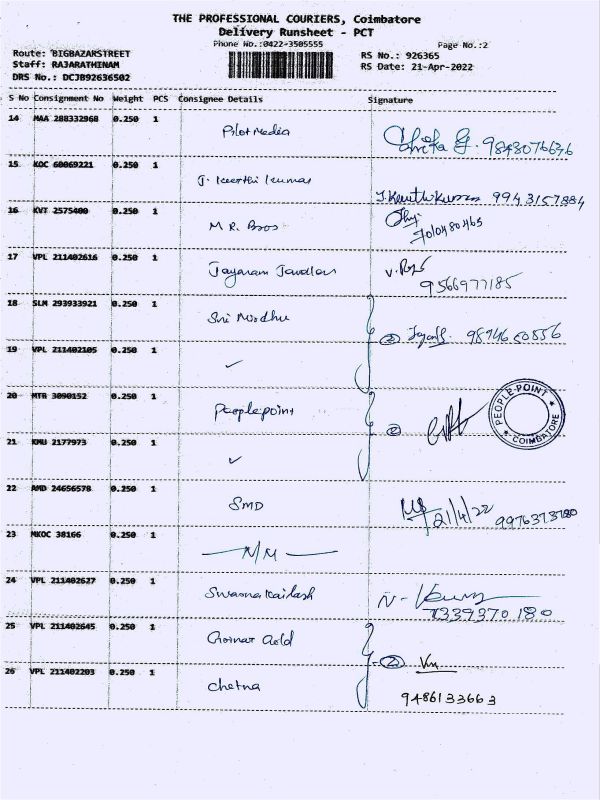 THE PROFESSIONAL COURIERS, Coimbatore
Delivery Runsheet - PCT
Phone No.:0422-3505555
Page No.:2
Route: BIGBAZARSTREET
RS No.: 926365
Staff: RAJARATHINAM
RS Date: 21-Apr-2022
DRS No.: DCJB92636502
S No Consignment No Weight PCS Consignee Details Signature
14 MAA 288332968 0.250 1 Pilot Media 9843076636
15 KOC 60069221 0.250 1 J. Keerthi Kumar J. Keerthi Kumar 9943157884
16 KVT 2575400 0.250 1 M R. Bros 7010480465
17 VPL 211402616 0.250 1 Jayaram V. 9566977185
18 SLM 293933921 0.250 1 Sri 2
19 VPL 211402105 0.250 1 ✓
20 MTR 3090152 0.250 1 Peoplepoint 2 PEOPLE POINT * COIMBATORE *
21 KMU 2177973 0.250 1 ✓
22 AMD 24656578 0.250 1 SMD 21/4/22 9976373780
23 MKOC 38166 0.250 1 N/M
24 VPL 211402627 0.250 1 Swarna Kailash N- 7339370180
25 VPL 211402645 0.250 1 Gold 2
26 VPL 211402203 0.250 1 Chetna 9486133663